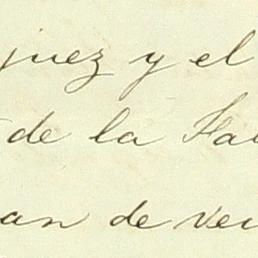 juez y el
de la Sa
an de ver